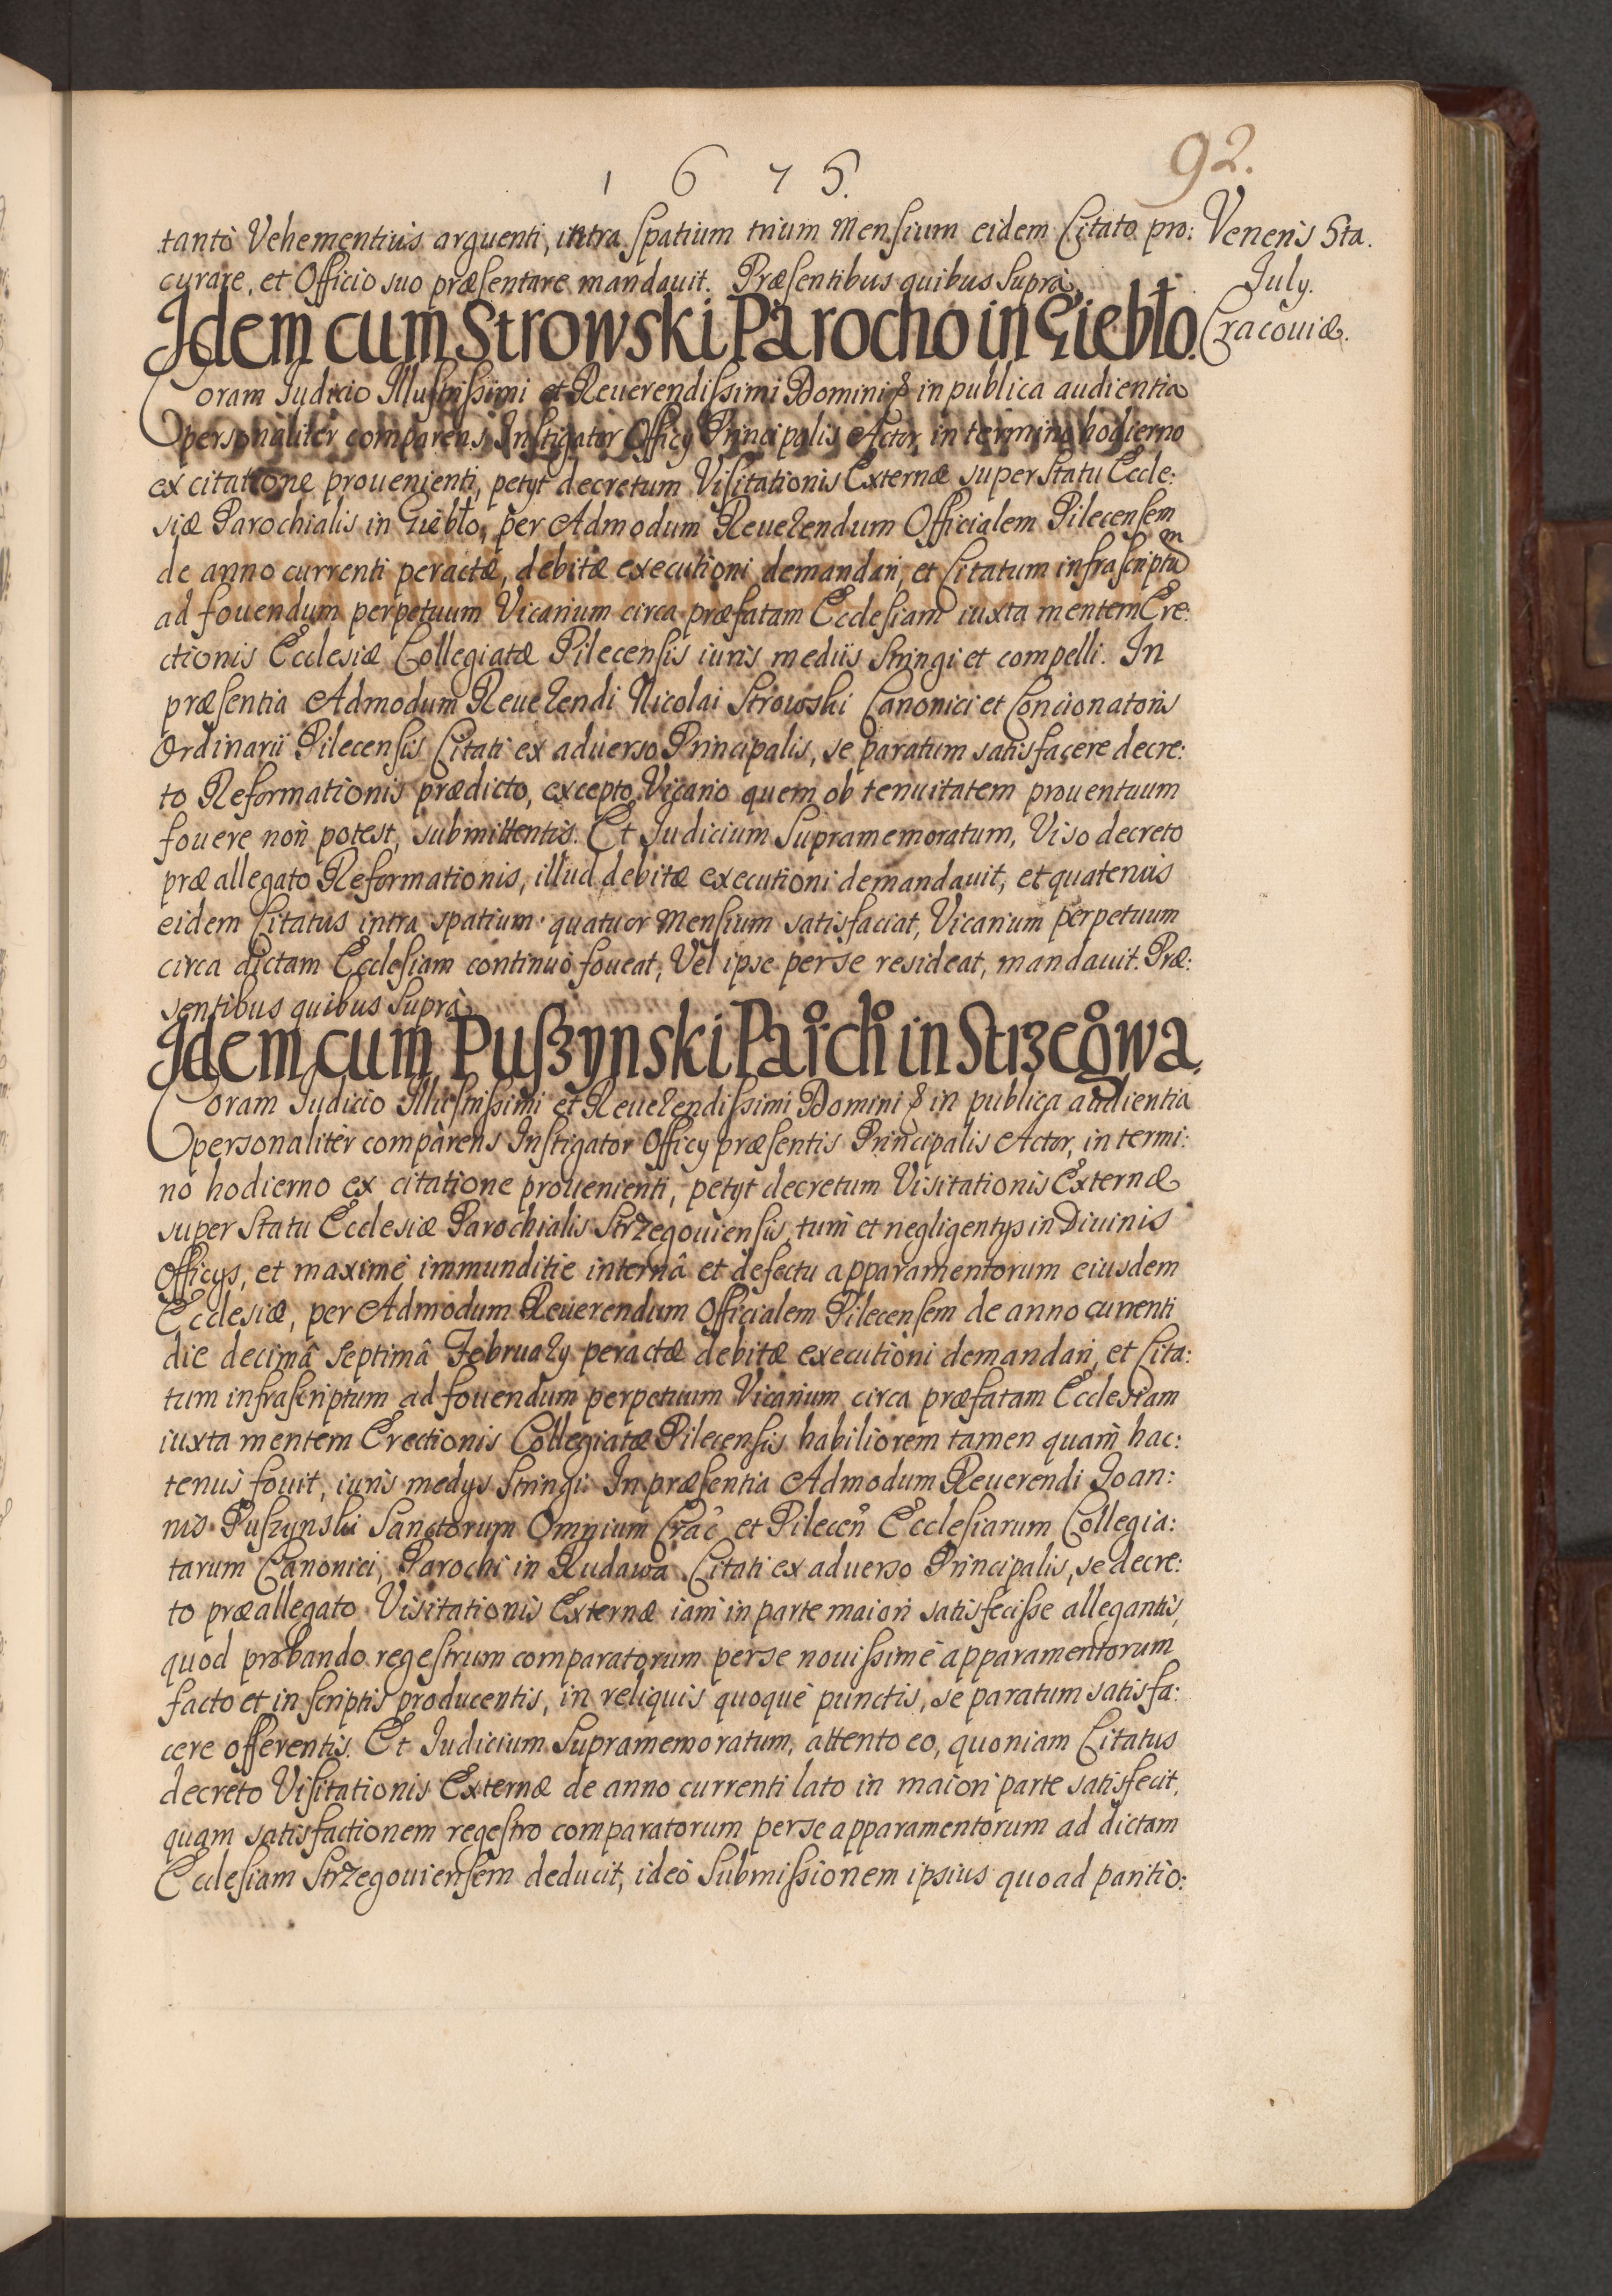 92.
1 6 7 5.
Veneris 5ta.
July.
Cracoviæ.
tantò Vehementiùs arguenti, intra spatium trium Mensium eidem Citato pro:
curare, et Officio suo præsentare mandauit. Præsentibus quibus Suprà.
Idem cum Strowski Parocho in Giebło.
Coram Iudicio Illustrissimi et Reuerendissimi Domini & in publica audientia
personaliter comparens Instigator Officy Principalis Actor, in termino hodierno
ex citatione prouenienti, petyt decretum Visitationis Externæ super statu Eccle:
siæ Parochialis in Giebło, per Admodum Reuerendum Officialem Pilecensem
de anno currenti peractæ, debitæ executioni demandari, et Citatum infrascriptum
ad fouendum perpetuum Vicarium circa præfatam Ecclesiam iuxta mentem Ere:
ctionis Ecclesiæ Collegiatæ Pilecensis iuris mediis stringi et compelli. In
præsentia Admodum Reuerendi Nicolai Strowski Canonici et Concionatoris
Ordinarii Pilecensis Citati ex aduerso Principalis, se paratum satisfacere decre:
to Reformationis prædicto, excepto Vicario quem ob tenuitatem prouentuum
fouere non potest, submittentis. Et Iudicium Supramemoratum, Viso decreto
præallegato Reformationis, illud debitæ executioni demandauit, et quatenus
eidem Citatus intra spatium quatuor Mensium satisfaciat, Vicarium perpetuum
circa dictam Ecclesiam continuò foueat, Vel ipse perse resideat, mandauit. Præ:
sentibus quibus Suprà.
Idem cum Puszynski Paroch in Strzegowa.
Coram Iudicio Illustrissimi et Reuerendissimi Domini & in publica audientia
personaliter comparens Instigator Officy præsentis Principalis Actor, in termi:
no hodierno ex citatione prouenienti, petyt decretum Visitationis Externæ
super Statu Ecclesiæ Parochialis Strzegouiensis, tum et negligentys in Diuinis
Officys, et maximè immunditie internâ et defectu apparamentorum eiusdem
Ecclesiæ, per Admodum Reuerendum Officialem Pilecensem de anno currenti
die decimâ septimâ February peractæ debitæ executioni demandari, et Cita:
tum infrascriptum ad fouendum perpetuum Vicarium circa præfatam Ecclesiam
iuxta mentem Erectionis Collegiatæ Pilecensis habiliorem tamen quam hac:
tenus fouit, iuris medys stringi. In præsentia Admodum Reuerendi Ioan:
nis Puszynski Sanctorum Omnium Crac et Pilecen Ecclesiarum Collegia:
tarum Canonici, Parochi in Rudawa Citati ex aduerso Principalis, se decre:
to præallegato Visitationis Externæ iam in parte maiori satisfecisse allegantis,
quod probando regestrum comparatorum perse nouissimè apparamentorum
facto et in scriptis producentis, in reliquis quoque punctis, se paratum satisfa:
cere offerentis. Et Iudicium Supramemoratum, attento eo, quoniam Citatus
decreto Visitationis Externæ de anno currenti lato in maiori parte satisfecit,
quam satisfactionem regestro comparatorum perse apparamentorum ad dictam
Ecclesiam Strzegouiensem deducit, ideò Submissionem ipsius quoad paritio: